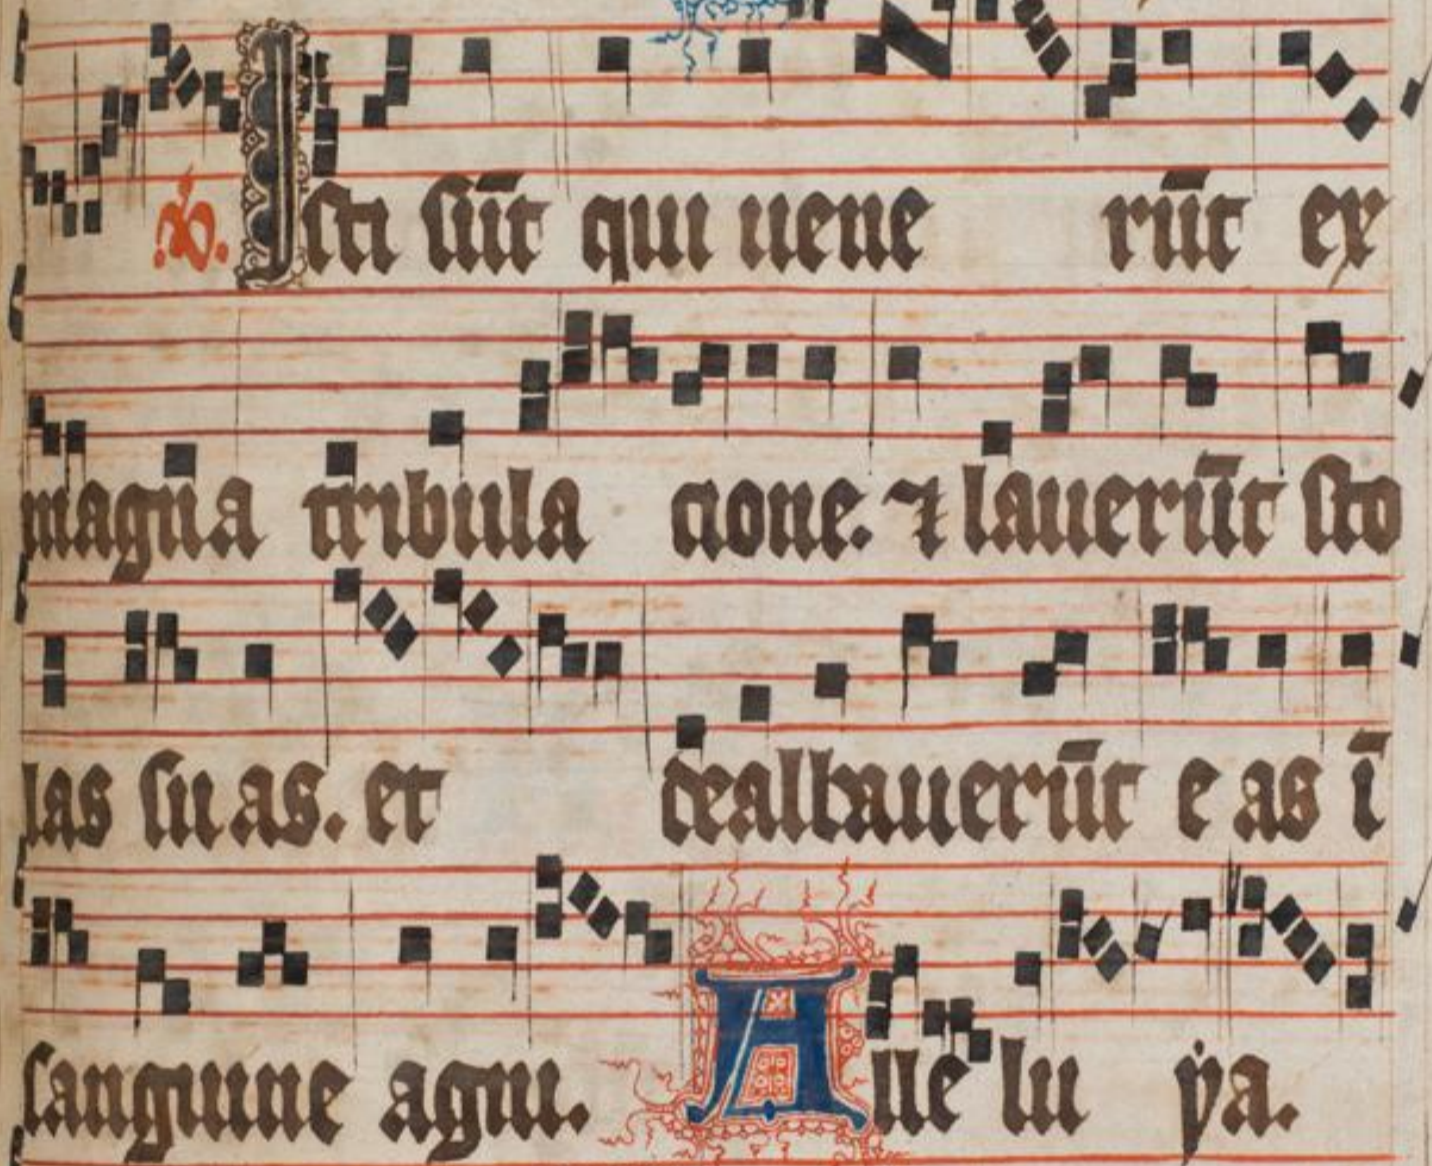 ℟. Isti sūt qui uene rūt ex
magna tribula cione. ⁊ lauerūt sto
las su as. et dealbauerūt e as ī
sanguine agni. Alle lu ẏa.